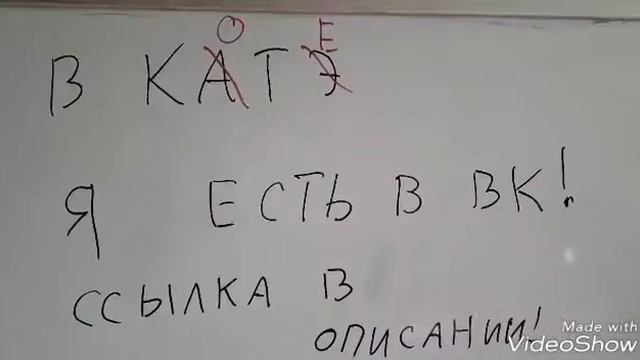 О Е
В КАТЭ
Я ЕСТЬ В ВК!
ССЫЛКА В
ОПИСАНИИ!
Made with
VideoShow